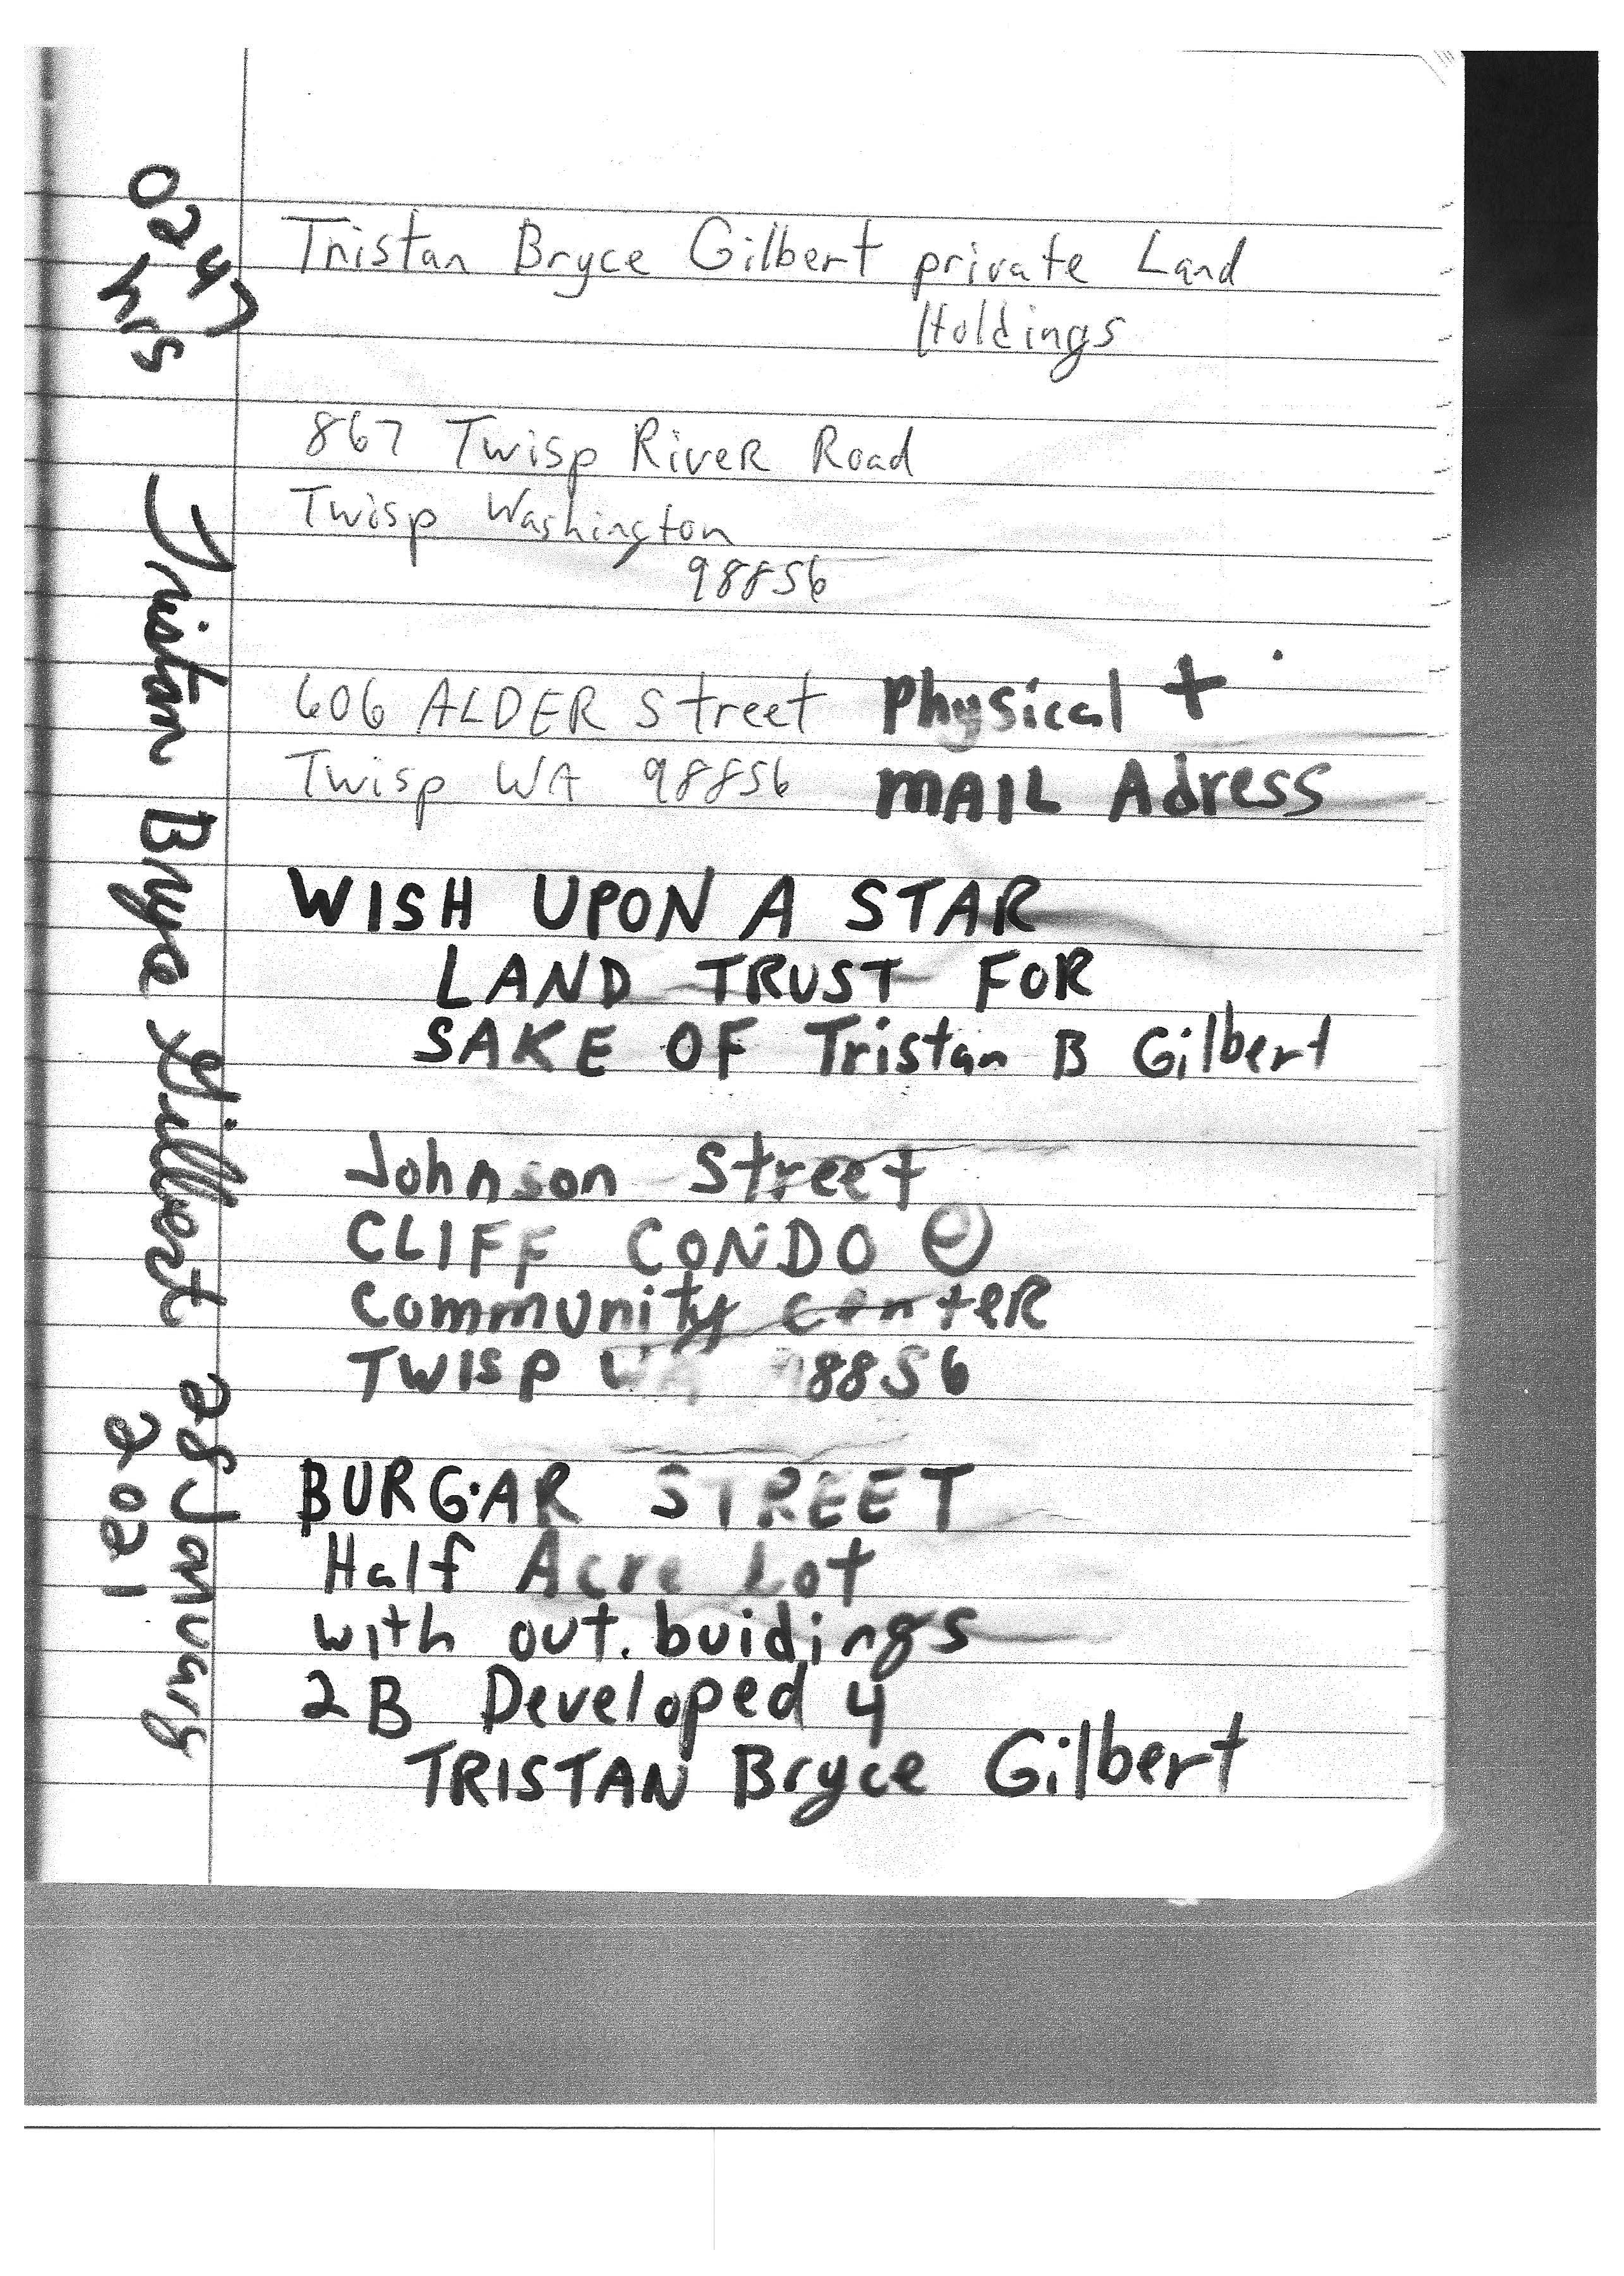 Tristan Bryce Gilbert private Land
Holdings
867 Twisp RiveR Road
Twisp Washington
98856
606 ALDER Street Physical +
Twisp WA 98856 MAIL Adress
WISH UPON A STAR
LAND TRUST FOR
SAKE OF Tristan B Gilbert
Johnson Street
CLIFF CONDO @
Community centeR
TWISP WA 98856
BURG·AR STREET
Half Acre Lot
with out. buidings
2B Developed 4
TRISTAN Bryce Gilbert
0247
hrs
Tristan Bryce Gilbert 28 January
2021